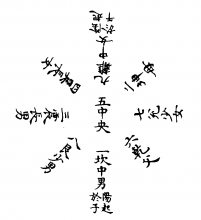 陰起
於午
九離中女
四巽長女
二坤母
三震長男
五中央
七兌少女
八艮少男
六乾父
一坎中男
陽起
於子